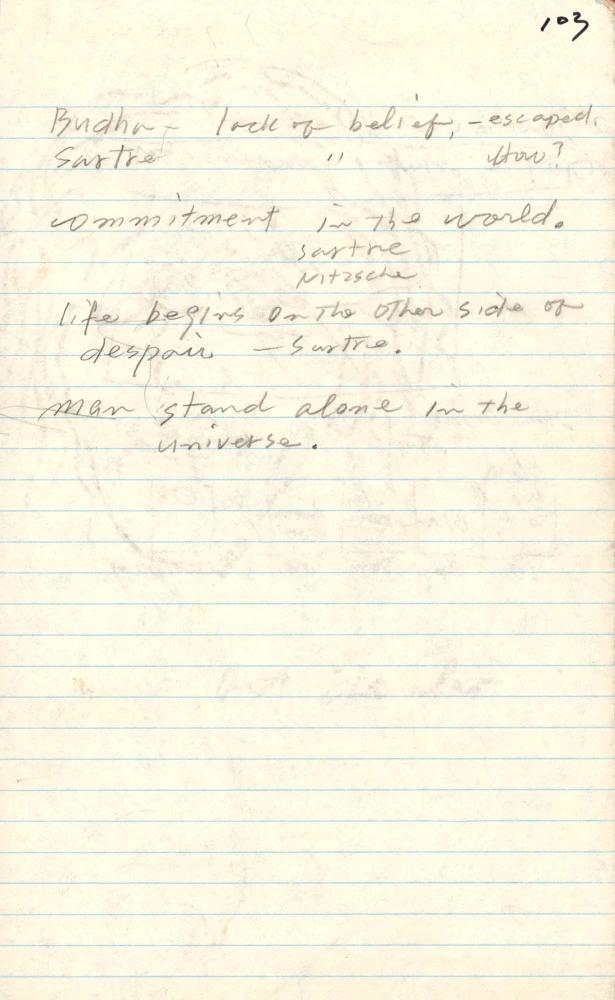 103
Budha - lack of belief, - escaped.
Sartre " How?
commitment in the world.
Sartre
Nitzsche
life begins on the other side of
despair - Sartre.
man stand alone in the
universe.